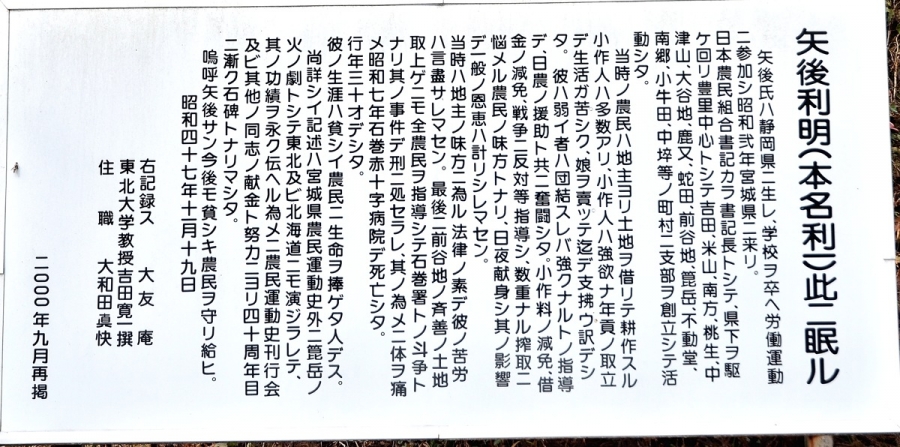 矢後利明(本名利一)此ニ眠ル
矢後氏ハ静岡県ニ生レ、学校ヲ卒ヘ労働運動
ニ参加シ昭和弐年宮城県ニ来リ。
日本農民組合書記カラ書記長トシテ、県下ヲ駆
ケ回リ豊里中心トシテ吉田、米山、南方、桃生、中
津山、大谷地、鹿又、蛇田、前谷地、箆岳、不動堂、
南郷、小牛田、中埣等ノ町村ニ支部ヲ創立シテ活
動シタ。
当時ノ農民ハ地主ヨリ土地ヲ借リテ耕作スル
小作人ハ多数アリ、小作人ハ強欲ナ年貢ノ取立
デ生活ガ苦シク、娘ヲ賣ッテ迄デ支拂ウ訳デシ
タ。彼ハ弱イ者ハ団結スレバ強クナルトノ指導
デ、日農ノ援助ト共ニ奮闘シタ。小作料ノ減免、借
金ノ減免、戦争ニ反対等指導シ、数重ナル搾取ニ
悩メル農民ノ味方トナリ、日夜献身シ其ノ影響
デ一般ノ恩恵ハ計リシレマセン。
当時ハ地主ノ味方ニ為ル法律ノ素デ彼ノ苦労
ハ言盡サレマセン。最後ニ前谷地ノ斉善ノ土地
取上ゲニモ全農民ヲ指導シテ石巻署トノ斗争ト
ナリ其ノ事件デ刑ニ処セラレ、其ノ為メニ体ヲ痛
メ昭和七年石巻赤十字病院デ死亡シタ。
行年三十オデシタ。
彼ノ生涯ハ貧シイ農民ニ生命ヲ捧ゲタ人デス。
尚詳シイ記述ハ宮城県農民運動史外ニ箆岳ノ
火ノ劇トシテ東北及ビ北海道ニモ演ジラレテ、
其ノ功績ヲ永ク伝ヘル為メニ農民運動史刊行会
及ビ其他ノ同志ノ献金ト努力ニヨリ四十周年目
ニ漸ク石碑トナリマシタ。
嗚呼矢後サン今後モ貧シキ農民ヲ守リ給ヒ。
昭和四十七年十二月十九日
右記録ス 大友庵
東北大学教授吉田寛一撰
住職 大和田眞快
二〇〇〇年九月再掲